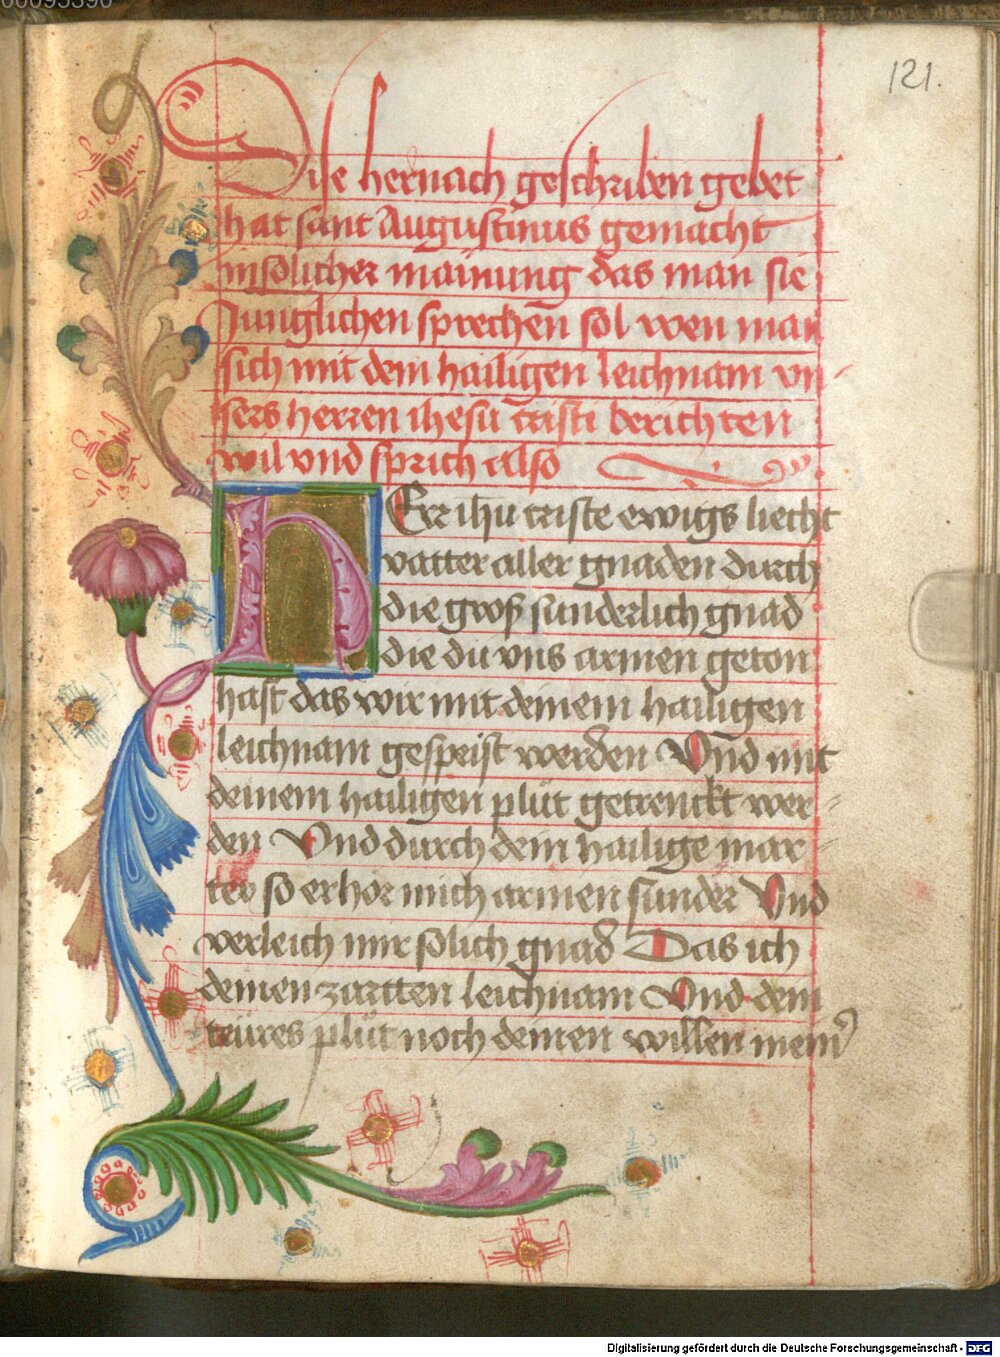 121.
Dise hernach geschriben gebet
hat sant Augustinus gemacht
in solicher mainung das man sie
Junglichen sprechen sol wen man
sich mit dem hailigen leichnam vn
sers herren ihesu cristi berichten
wil vnd sprich also
HErr ihu criste ewigs liecht
vatter aller gnaden durch
die groß sunderlich gnad
die du vns armen geton
hast das wir mit deinem hailigen
leichnam gespeist werden Vnd mit
deinem hailigen plut getrenckt wer-
den Vnd durch dein hailige mar
ter so erhör mich armen sunder Vnd
verleich mir solich gnad Das ich
deinen zartten leichnam Vnd dein
teures plüt noch deinen willen meinen
Digitalisierung gefördert durch die Deutsche Forschungsgemeinschaft - DFG